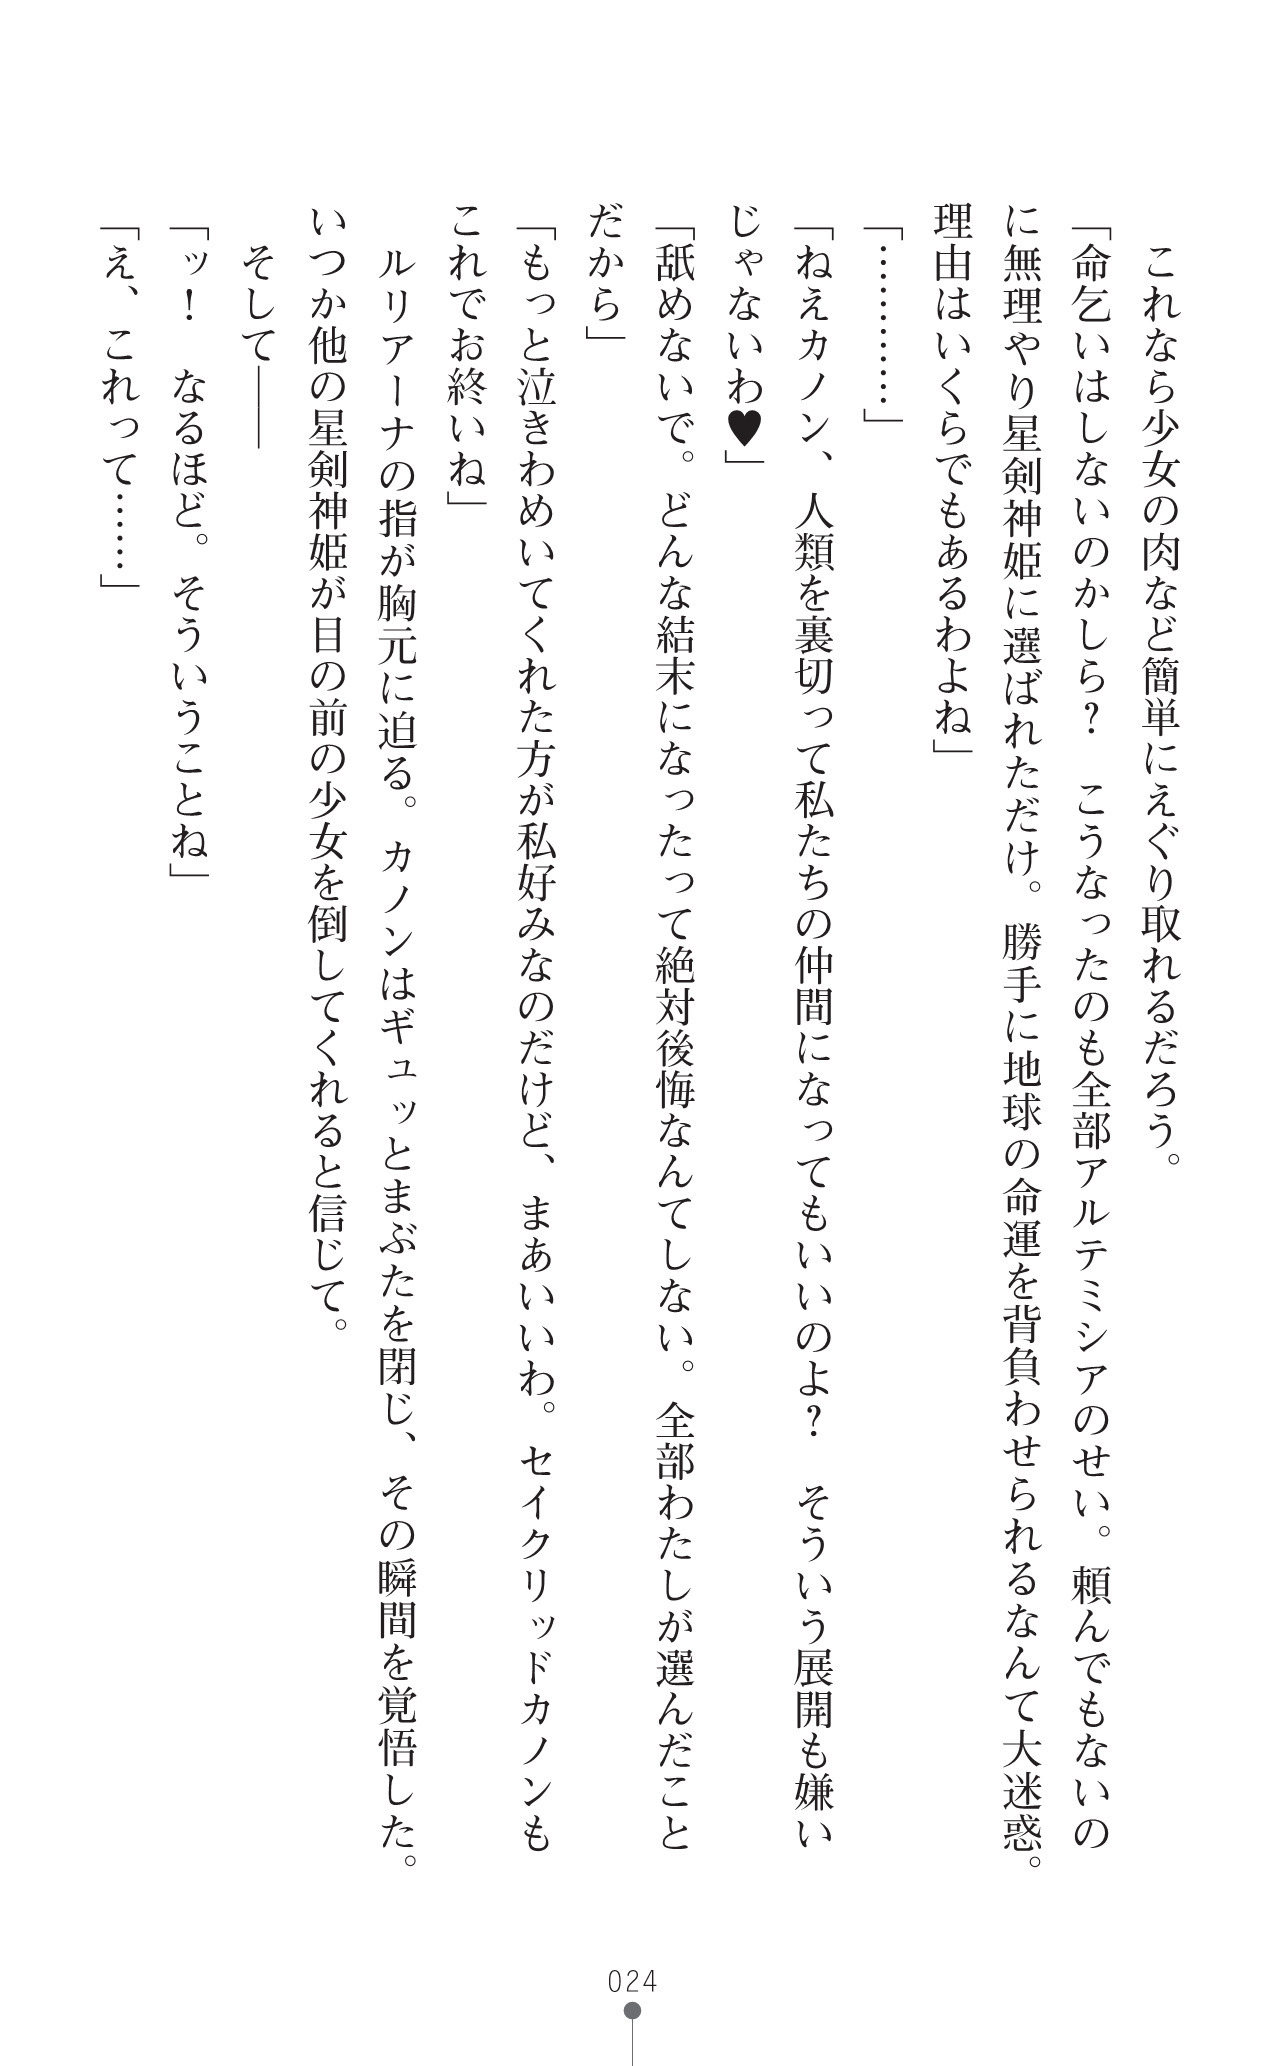 これなら少女の肉など簡単にえぐり取れるだろう。
「命乞いはしないのかしら？　こうなったのも全部アルテミシアのせい。頼んでもないの
に無理やり星剣神姫に選ばれただけ。勝手に地球の命運を背負わせられるなんて大迷惑。
理由はいくらでもあるわよね」
「…………」
「ねえカノン、人類を裏切って私たちの仲間になってもいいのよ？　そういう展開も嫌い
じゃないわ♥」
「舐めないで。どんな結末になったって絶対後悔なんてしない。全部わたしが選んだこと
だから」
「もっと泣きわめいてくれた方が私好みなのだけど、まあいいわ。セイクリッドカノンも
これでお終いね」
　ルリアーナの指が胸元に迫る。カノンはギュッとまぶたを閉じ、その瞬間を覚悟した。
いつか他の星剣神姫が目の前の少女を倒してくれると信じて。
　そして――
「ッ！　なるほど。そういうことね」
「え、これって……」
024